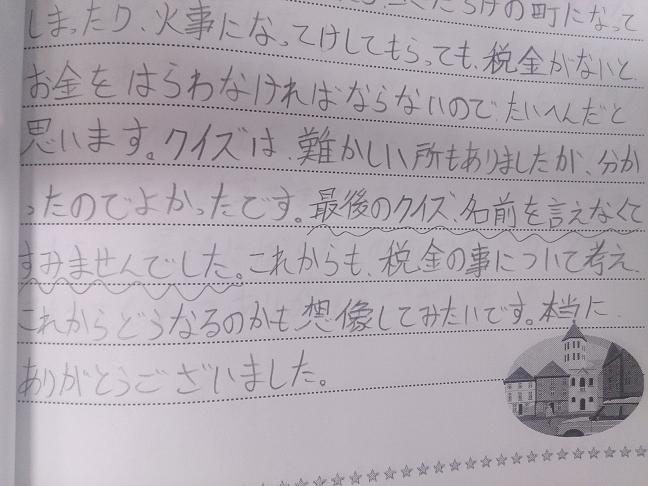 だらけの町になって
しまったり、火事になってけしてもらっても、税金がないと、
お金をはらわなければならないので、たいへんだと
思います。クイズは、難かしい所もありましたが、分か
ったのでよかったです。最後のクイズ、名前を言えなくて
すみませんでした。これからも、税金の事について考え、
これからどうなるのかも想像してみたいです。本当に、
ありがとうございました。